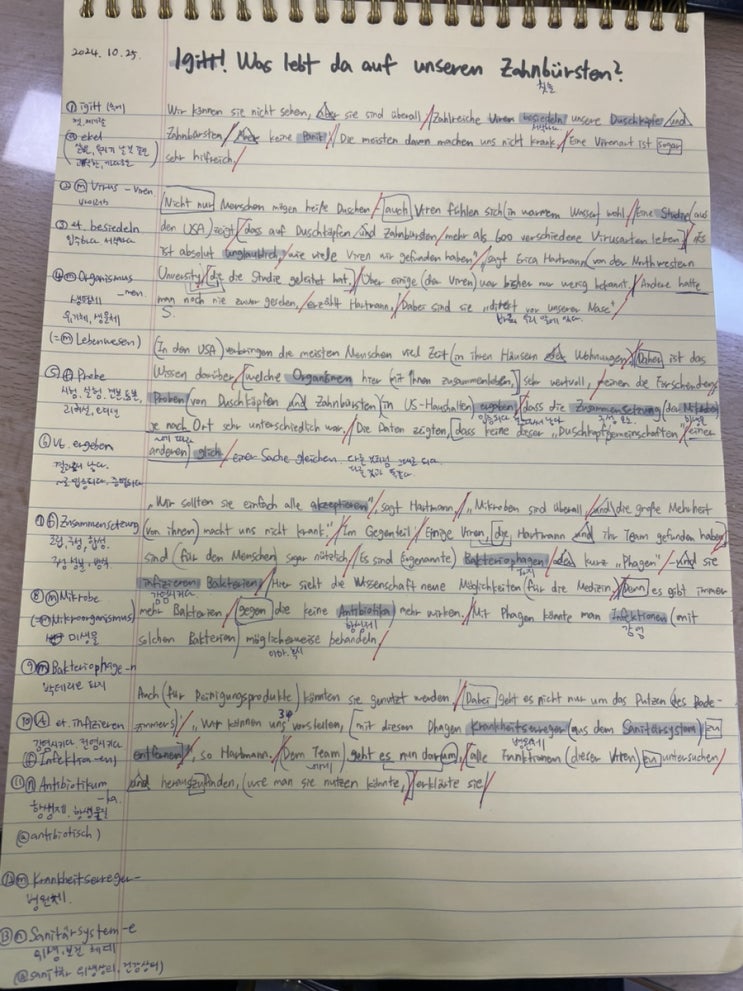 2024. 10. 25.
Igitt! Was lebt da auf unseren Zahnbürsten?
칫솔
① igitt (
② ekel
Wir können sie nicht sehen, aber sie sind überall / Zahlreiche Viren besiedeln unsere Duschköpfe und
Zahnbürsten / Aber keine Panik / Die meisten davon machen uns nicht krank / Eine Virenart ist sogar
sehr hilfreich /
② ⓜ Virus - Viren
바이러스
③ et. besiedeln
Nicht nur Menschen mögen heiße Duschen / auch Viren fühlen sich (in warmem Wasser) wohl / Eine Studie (aus
den USA) zeigt / dass auf Duschköpfen und Zahnbürsten / mehr als 600 verschiedene Virusarten leben / „Es
ist absolut unglaublich, wie viele Viren wir gefunden haben" / sagt Erica Hartmann (von der Northwestern
University), die die Studie geleitet hat / Über einige (der Viren) war bisher nur wenig bekannt / Andere hatte
man noch nie zuvor gesehen, / erzählt Hartmann / Dabei sind sie „direkt vor unserer Nase" /
④ ⓜ Organismus
-men
생명체
유기체, 생물체
(=ⓜ Lebenwesen)
⑤ ⓕ Probe
(In den USA) verbringen die meisten Menschen viel Zeit (in ihren Häusern oder Wohnungen) / Daher ist das
Wissen darüber / welche Organismen hier (mit ihnen zusammenleben,) sehr wertvoll, / meinen die Forschenden /
Proben (von Duschköpfen und Zahnbürsten) (in US-Haushalten) ergeben / dass die Zusammensetzung (der Mikroben)
je nach Ort sehr unterschiedlich war / Die Daten zeigten, dass keine dieser „Duschkopfgemeinschaften" / einer
anderen) glich / einer Sache gleichen.
⑥ Vt. ergeben
⑦ ⓕ Zusammensetzung
조립, 구성, 합성
„Wir sollten sie einfach alle akzeptieren" / sagt Hartmann / „Mikroben sind überall, und die große Mehrheit
(von ihnen) macht uns nicht krank" / Im Gegenteil / Einige Viren, die Hartmann und ihr Team gefunden haben
sind (für den Menschen sogar nützlich) / Es sind (sogenannte) Bakteriophagen / oder kurz „Phagen" / - und sie
infizieren Bakterien / Hier sieht die Wissenschaft neue Möglichkeiten (für die Medizin) / Denn es gibt immer
감염시키다.
mehr Bakterien / gegen die keine Antibiotika mehr wirken / Mit Phagen könnte man Infektionen (mit
항생제
감염
solchen Bakterien) möglicherweise behandeln /
⑧ ⓜ Mikrobe
(=ⓜ Mikroorganismus)
미생물
⑨ ⓜ Bakteriophage-n
박테리오 파지
Auch (für Reinigungsprodukte) könnten sie genutzt werden / Dabei geht es nicht nur um das Putzen (des Bade-
zimmers) / „Wir können uns vorstellen, (mit diesen Phagen Krankheitserreger (aus dem Sanitärsystem) zu
병원체
entfernen", so Hartmann. / Dem Team geht es nun darum, / alle Funktionen (dieser Viren) zu untersuchen /
und herauszufinden, (wie man sie nutzen könnte,) / erklärte sie /
⑩ et. infizieren
감염시키다 전염시키다
ⓕ Infektion-en
⑪ ⓝ Antibiotikum
-ka
항생제, 항생물질
ⓐ antibiotisch)
⑫ ⓜ Krankheitserreger-
병원체.
⑬ ⓝ Sanitärsystem-e
위생, 보건 체계